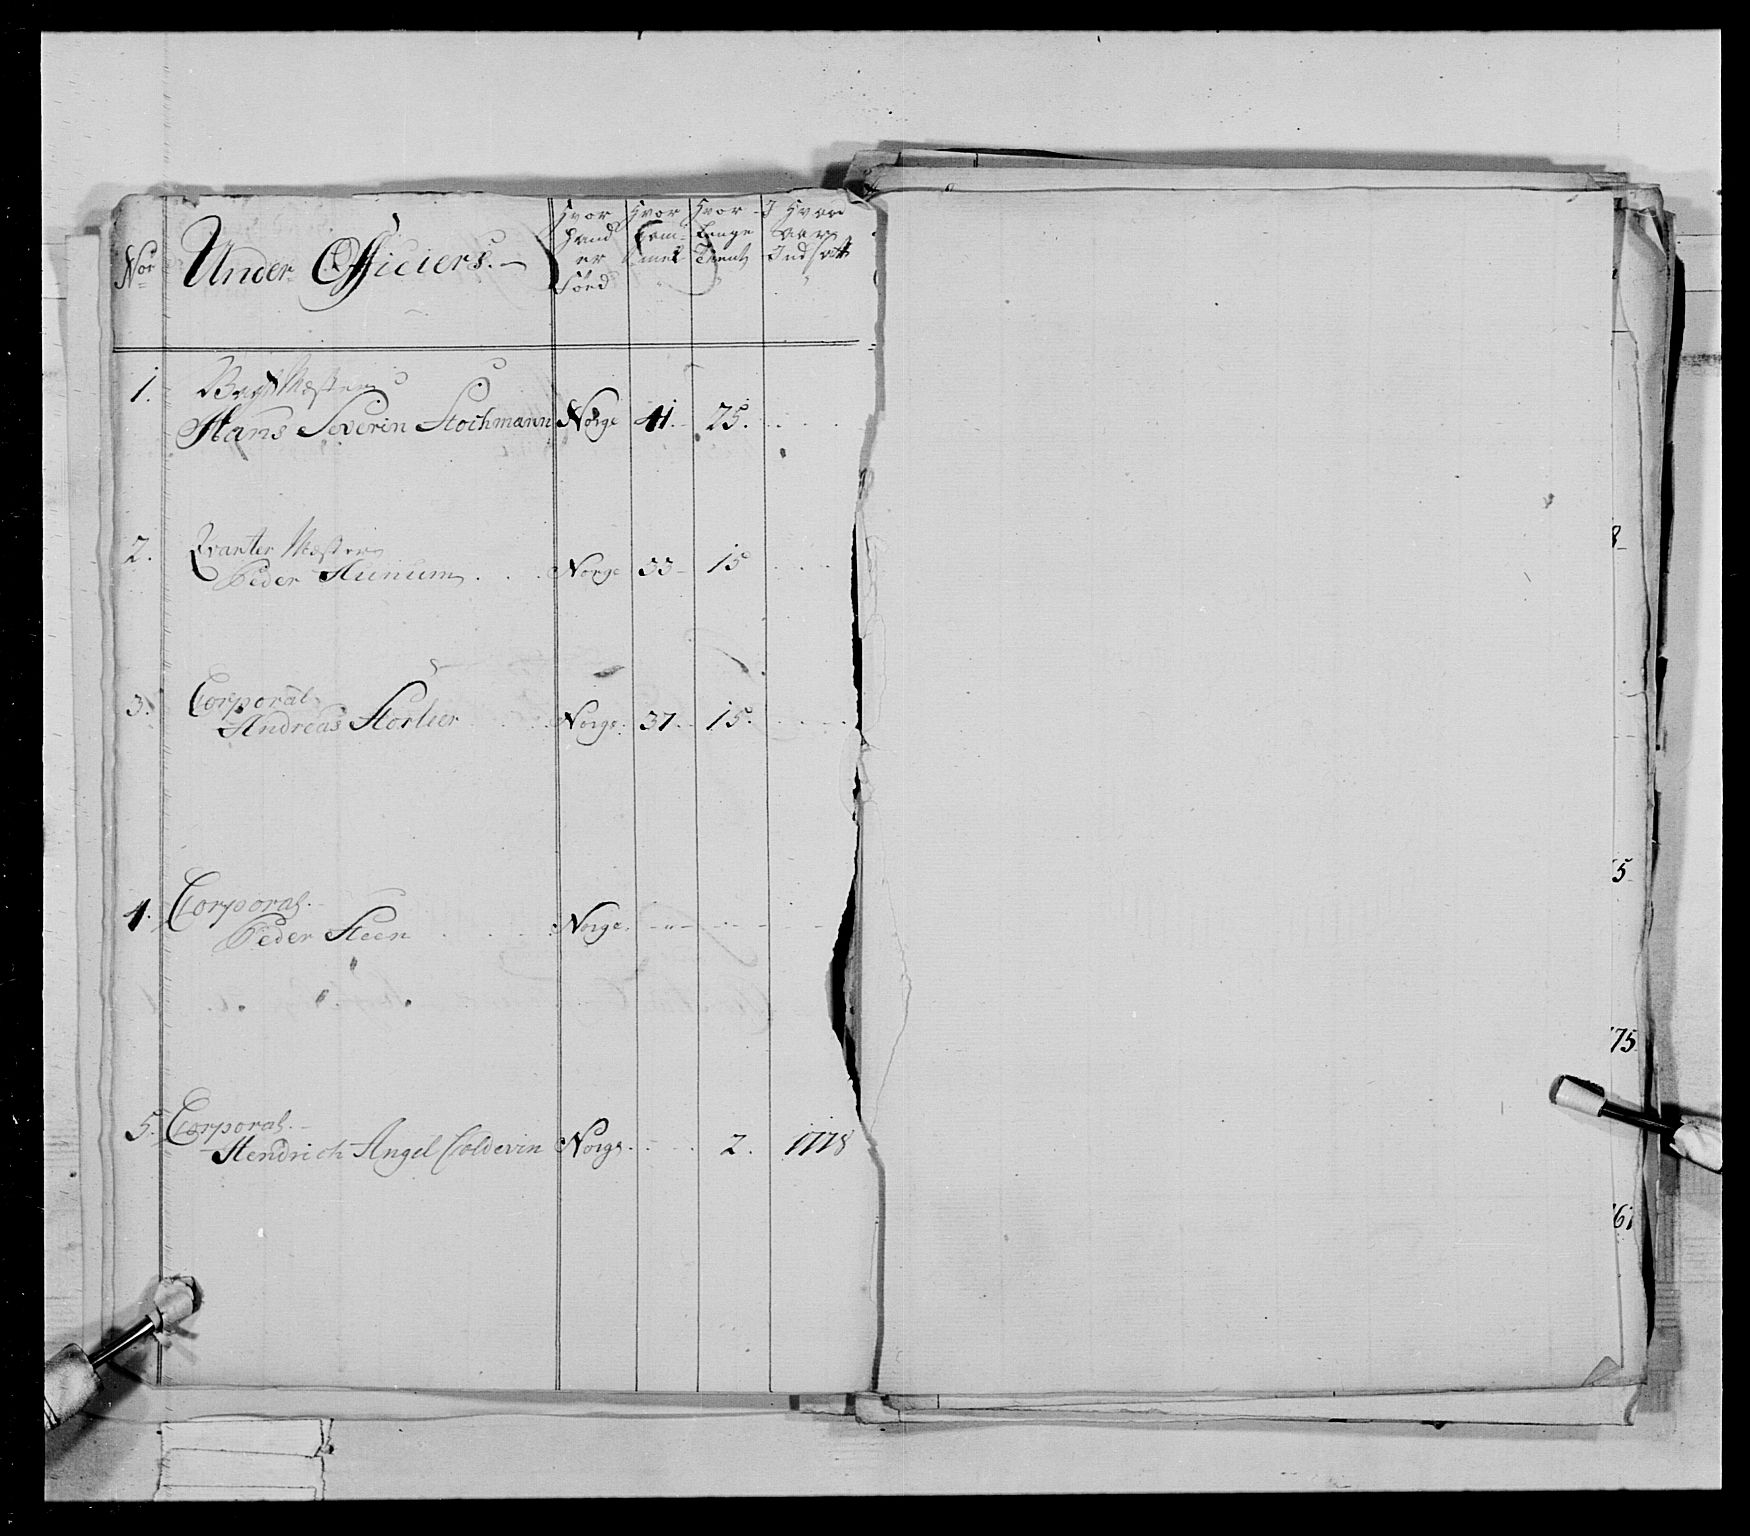 No.
Under Officiers.
Hvor hand er Föed
Hvor gam-mel
Hvor længe Tient
I Hvad Aar Indsatt
1. Vagt Mester
Hans Severin Stochmann Norge 41. 25.
2. Qvarter Mester
Peder Hunum Norge 33 15
3. Corporal
Andreas Storlier Norge. 37. 15.
4. Corporal.
Peder Steen Norge.
5. Corporal.
Hendrich Angel Coldevin Norge. 2. 1778
5
75